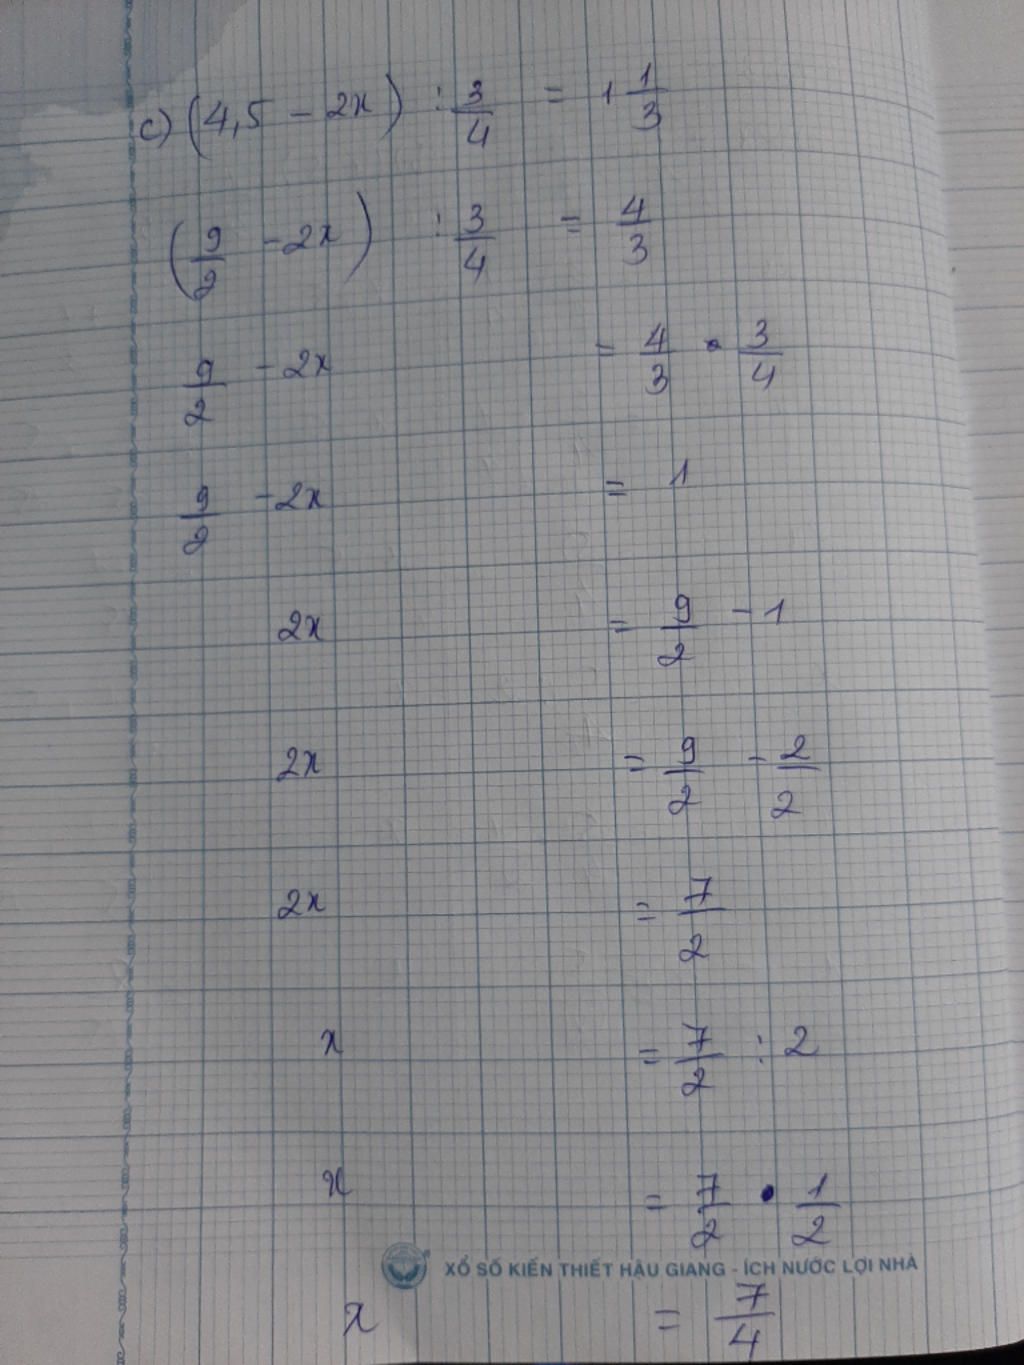 c) (4,5 - 2x) : 3/4 = 1 1/3
(9/2 - 2x) : 3/4 = 4/3
9/2 - 2x = 4/3 • 3/4
9/2 - 2x = 1
2x = 9/2 - 1
2x = 9/2 - 2/2
2x = 7/2
x = 7/2 : 2
x = 7/2 • 1/2
XỔ SỐ KIẾN THIẾT HẬU GIANG - ÍCH NƯỚC LỢI NHÀ
x = 7/4